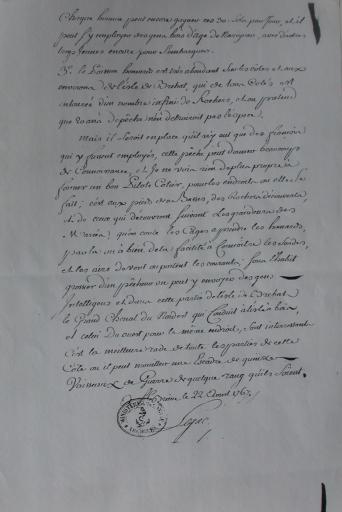 Chaque homme peut encore gagner 20 s. par jour, et il
peut s'y employer des gens hors d'age de Navigation, avec d'autres
trop jeunes encore pour s'embarquer.
Le Poisson homard est très abondant sur les côtes et aux
environs de l'isle de Brehat, qui de tous Cotés est
entourée d'un nombre infini de Rochers, et on pretend
que 20 ans de pêche n'en detruiront pas l'espece.
Mais il seroit en place qu'il n'y eut que des françois
qui y fussent employés, cette pêche peut donner beaucoup
de Connoissance, et je ne vois rien de plus propre à
former un bon Pilote Côtier, pour les endroits où elle se
fait; c'est aux pieds des Basses, des Rochers découverts,
et de ceux qui decouvrent suivant les grandeurs des
Marées, qu'on coule les Cages à prendre les homards,
par là on a bien de la facilité à Connoître les fondes,
et les aires de vent où portent les courants. Sous l'habit
grossier d'un pêcheur on peut y envoyer des gens
Intelligens et dans cette partie de l'isle de Brehat
le Grand Chenal du Nord qui Conduit à
et celui Du ouest pour le même endroit, sont interessants
C'est la meilleure rade de toute les parties de cette
Côte où il peut mouiller une Escadre de quinze
Vaisseaux de Guerre de quelque rang qu'ils soient.
le 22 Avril 176
MINISTÈRE
ARCHIVES